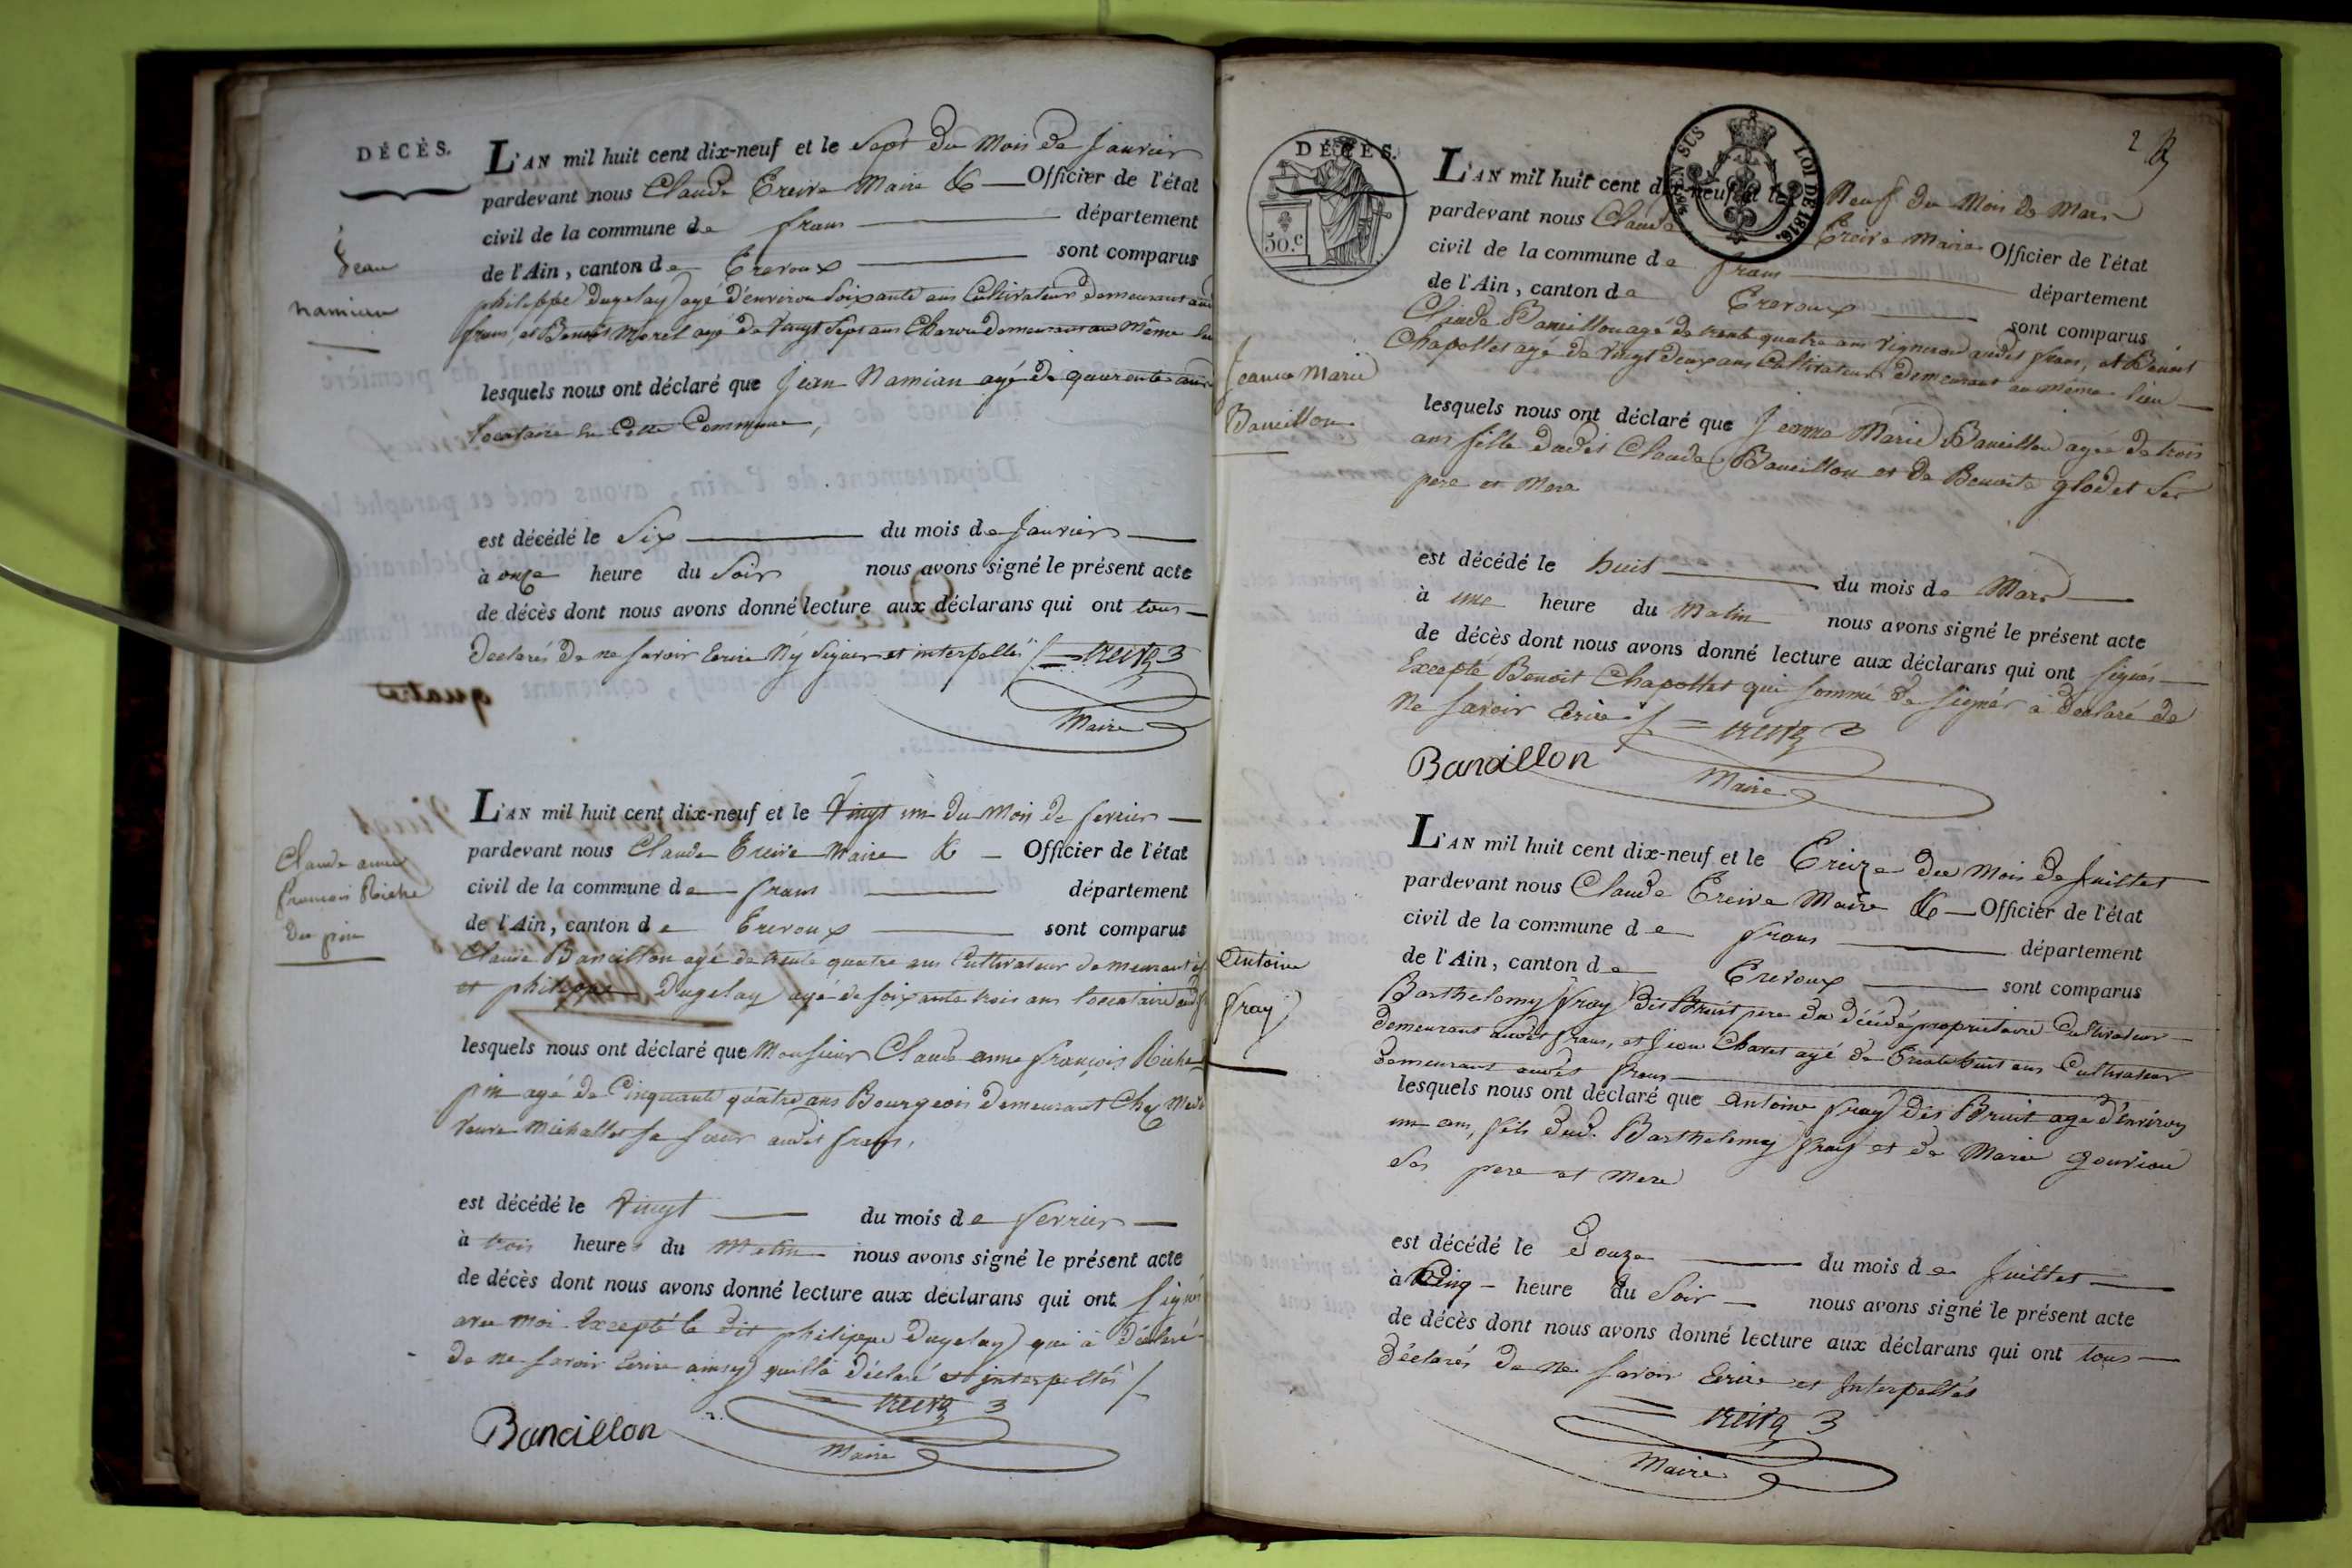 DÉCÈS.
Jean
namian
L'AN mil huit cent dix-neuf et le Sept du Mois de Janvier
pardevant nous Claude Treive Maire & Officier de l'état
civil de la commune de frans département
de l'Ain, canton de Trevoux sont comparus
philippe Dugelay agé d'environ Soixante ans Cultivateur demeurant aud
frans, et Benoit Morel age de Vingt Sept ans Charon demeurant au Même lieu
lesquels nous ont déclaré que Jean Namian agé de quarente ans
Locataire en Cette Commune,
est décédé le Six du mois de Janvier
à onze heure du Soir nous avons signé le présent acte
de décès dont nous avons donné lecture aux déclarans qui ont tous
declarés de ne savoir Ecrire Ny Signer et interpellés
treive
Maire
Claude anne
francois Riche
du pin
L'AN mil huit cent dix-neuf et le Vingt un du Mois de fevrier
pardevant nous Claude Treive Maire & Officier de l'état
civil de la commune de frans département
de l'Ain, canton de Trevoux sont comparus
Claude Bancillon agé de trente quatre ans Cultivateur demeurant
et philippe Dugelay agé de soixante trois ans Locataire aud
lesquels nous ont déclaré que Monsieur Claude anne francois Riche
pin agé de Cinquante quatre ans Bourgeois demeurant Chez Made
Veuve Michallet sa sœur audit frans,
est décédé le Vingt du mois de fevrier
à trois heure du Matin nous avons signé le présent acte
de décès dont nous avons donné lecture aux déclarans qui ont Signé
avec moi Excepté le dit philippe Dugelay qui à déclaré
de ne savoir Ecrire ainsy quilla déclaré et interpellés
treive
Bancillon
Maire
2
DÉCÈS.
50.c
EN SUS
LOI DE 1816.
Jeanne Marie
Bancillon
L'AN mil huit cent dix-neuf et le Neuf du Mois de Mars
pardevant nous Claude Treive Maire Officier de l'état
civil de la commune de frans département
de l'Ain, canton de Trevoux sont comparus
Claude Bancillon agé de trente quatre ans Vigneron audit frans, et Benoit
Chapottet agé de Vingt deux ans Cultivateur demeurant au même lieu
lesquels nous ont déclaré que Jeanne Marie Bancillon agée de trois
ans fille dudit Claude Bancillon et de Benoite glodet Ses
pere et Mere
est décédé le huit du mois de Mars
à une heure du Matin nous avons signé le présent acte
de décès dont nous avons donné lecture aux déclarans qui ont signés
Excepté Benoit Chapottet qui sommé de signér à déclaré de
Ne savoir Ecrire
treive
Bancillon
Maire
Antoine
fray
L'AN mil huit cent dix-neuf et le Treize du Mois de Juillet
pardevant nous Claude Treive Maire & Officier de l'état
civil de la commune de frans département
de l'Ain, canton de Trevoux sont comparus
Barthelemy fray dit Bruit pere du décédé propriétaire Cultivateur
demeurant audit frans, et Jean Charet agé de Trente huit ans Cultivateur
demeurant audit frans
lesquels nous ont déclaré que Antoine fray dit Bruit age d'environ
un ans, fils dud. Barthelemy fray et de Marie gourion
Ses pere et Mere
est décédé le Douze du mois de Juillet
à Cinq heure du Soir nous avons signé le présent acte
de décès dont nous avons donné lecture aux déclarans qui ont tous
déclarés de ne savoir Ecrire et Interpellés
treive
Maire